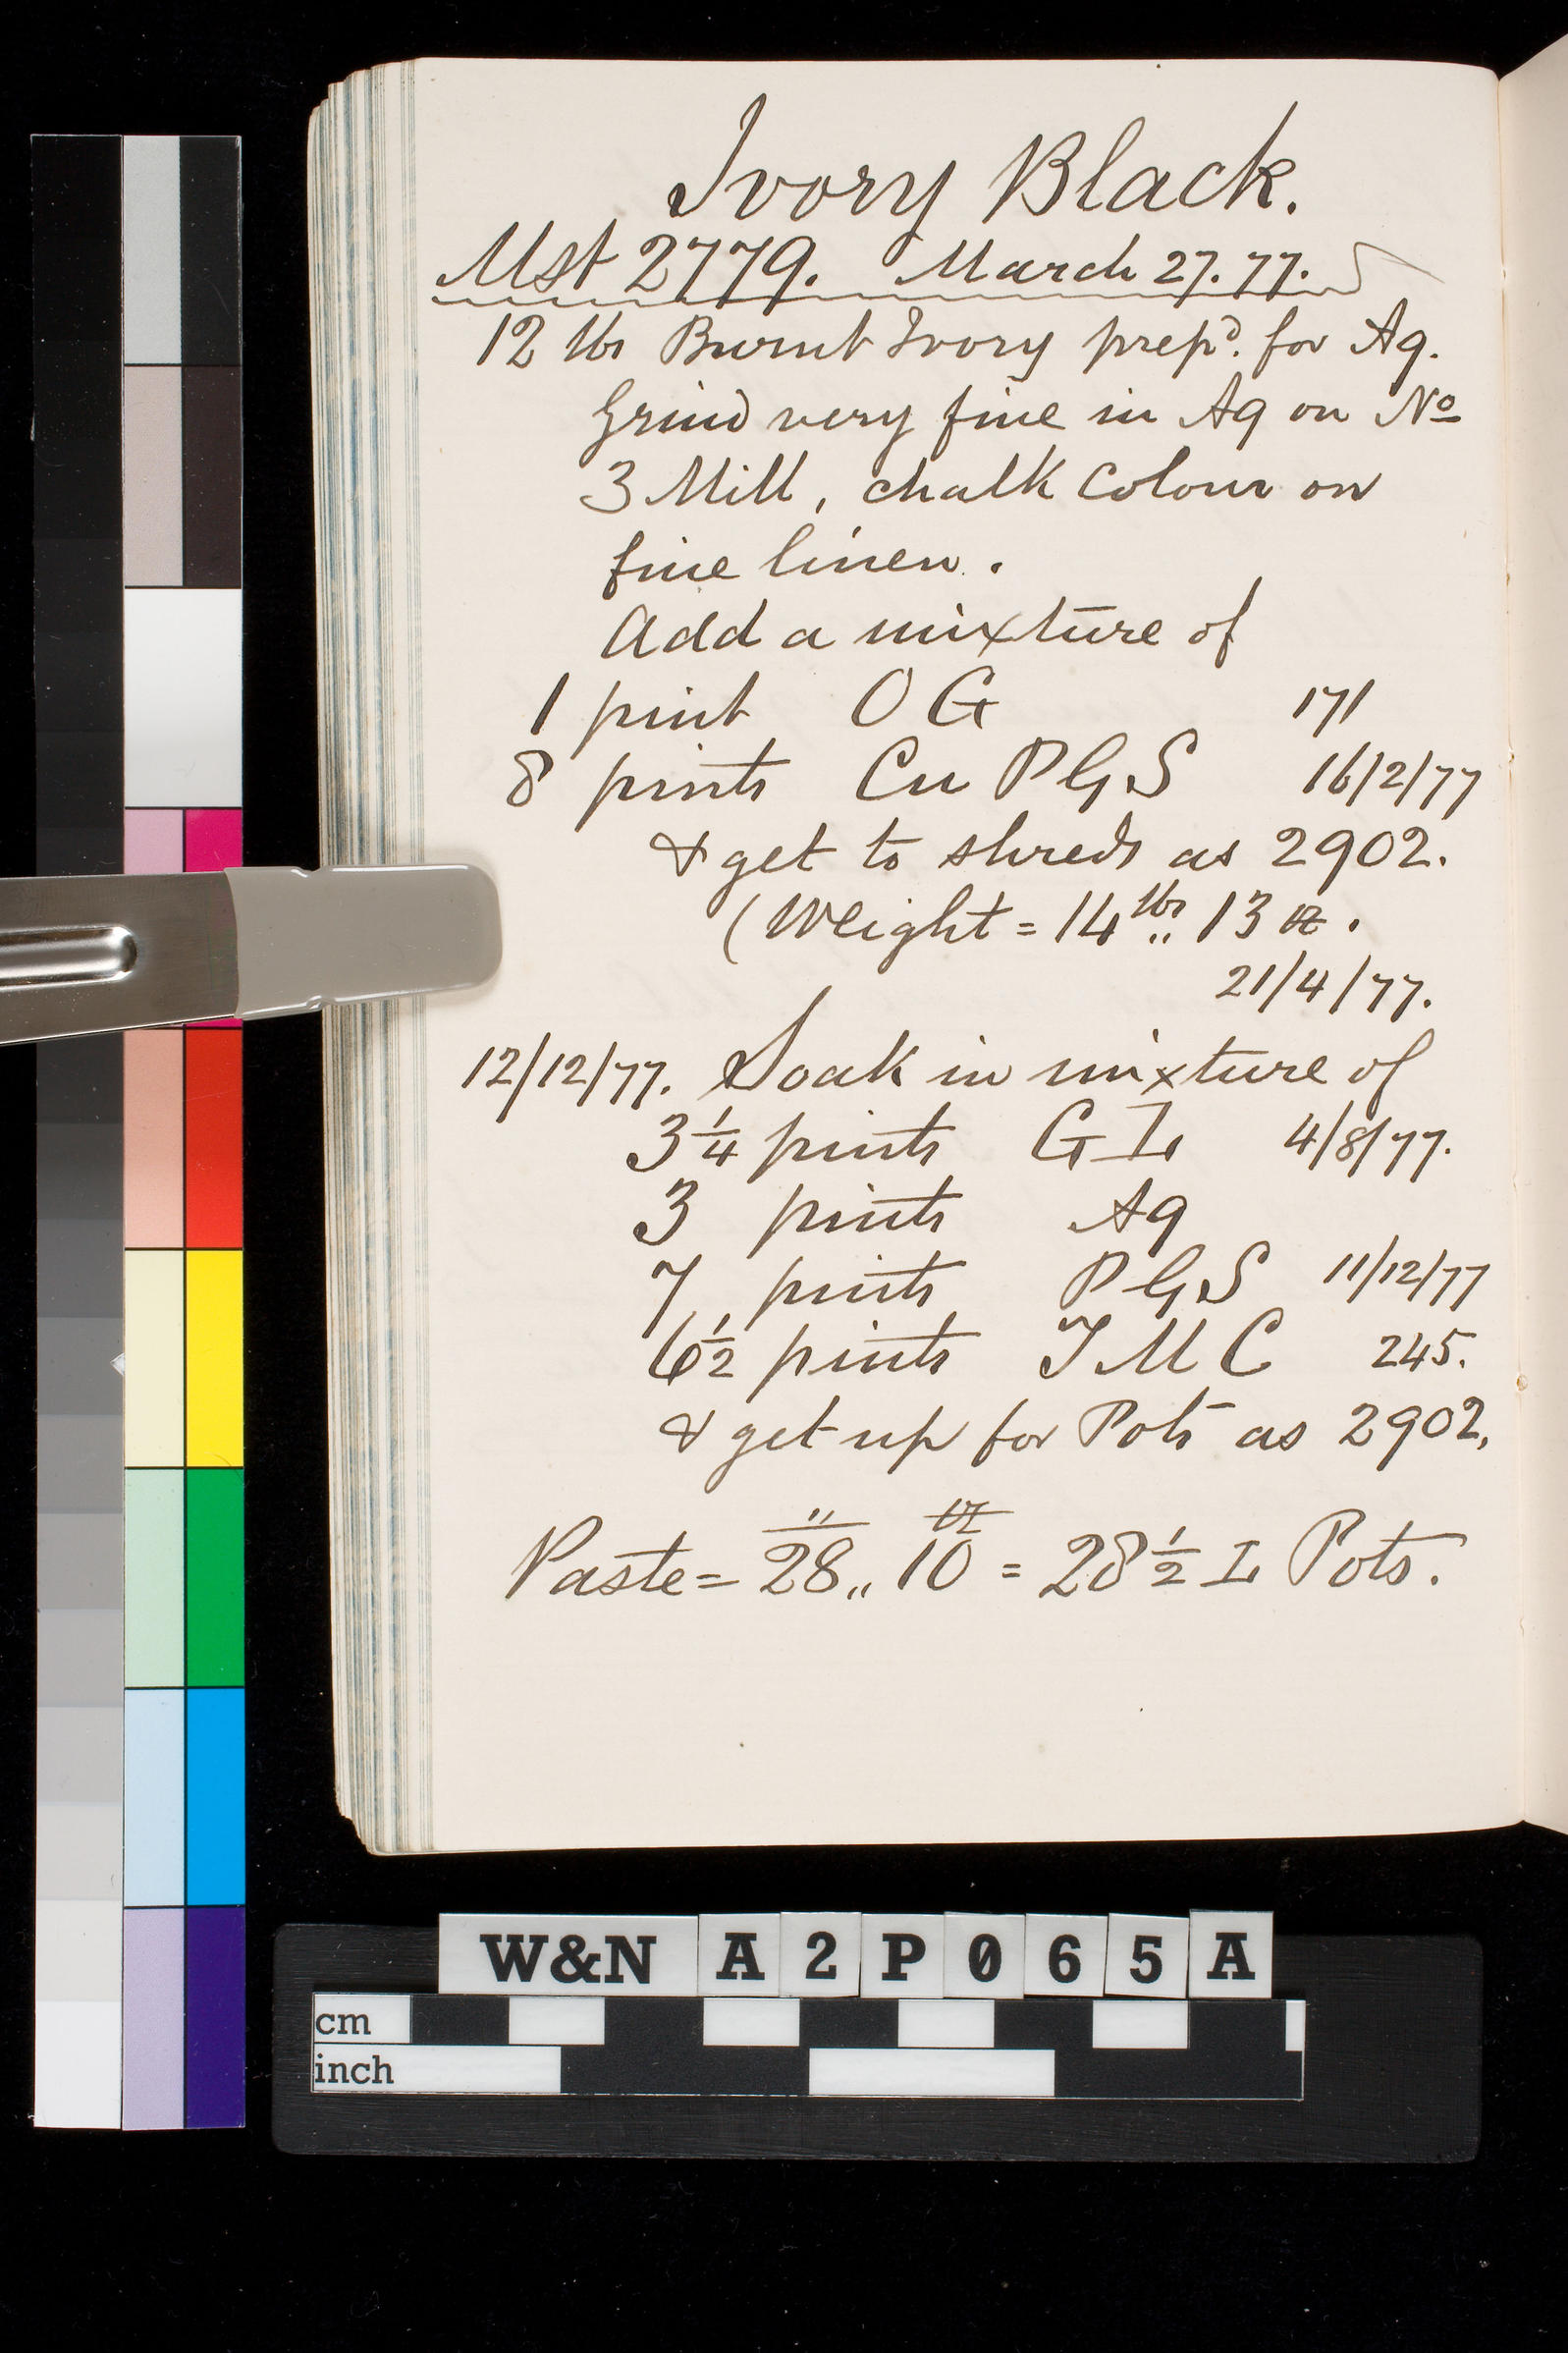 Ivory Black.
Mst 2779. March 27. 77.
12 lbs Burnt Ivory prepd. for Aq.
Grind very fine in Aq on No
3 Mill, chalk Colour on
fine linen.
Add a mixture of
1 pint O G 171
8 pints Cu P G S 16/2/77
& get to shreds as 2902.
(Weight = 14 lbs 13 oz.
21/4/77.
12/12/77. Soak in mixture of
3 1/4 pints G L 4/8/77.
3 pints Aq
7 pints P G S 11/12/77
6 1/2 pints T M C 245.
& get up for Pots as 2902.
Paste = 28 " 10 oz = 28 1/2 L Pots.
W&N A2P065A
cm
inch